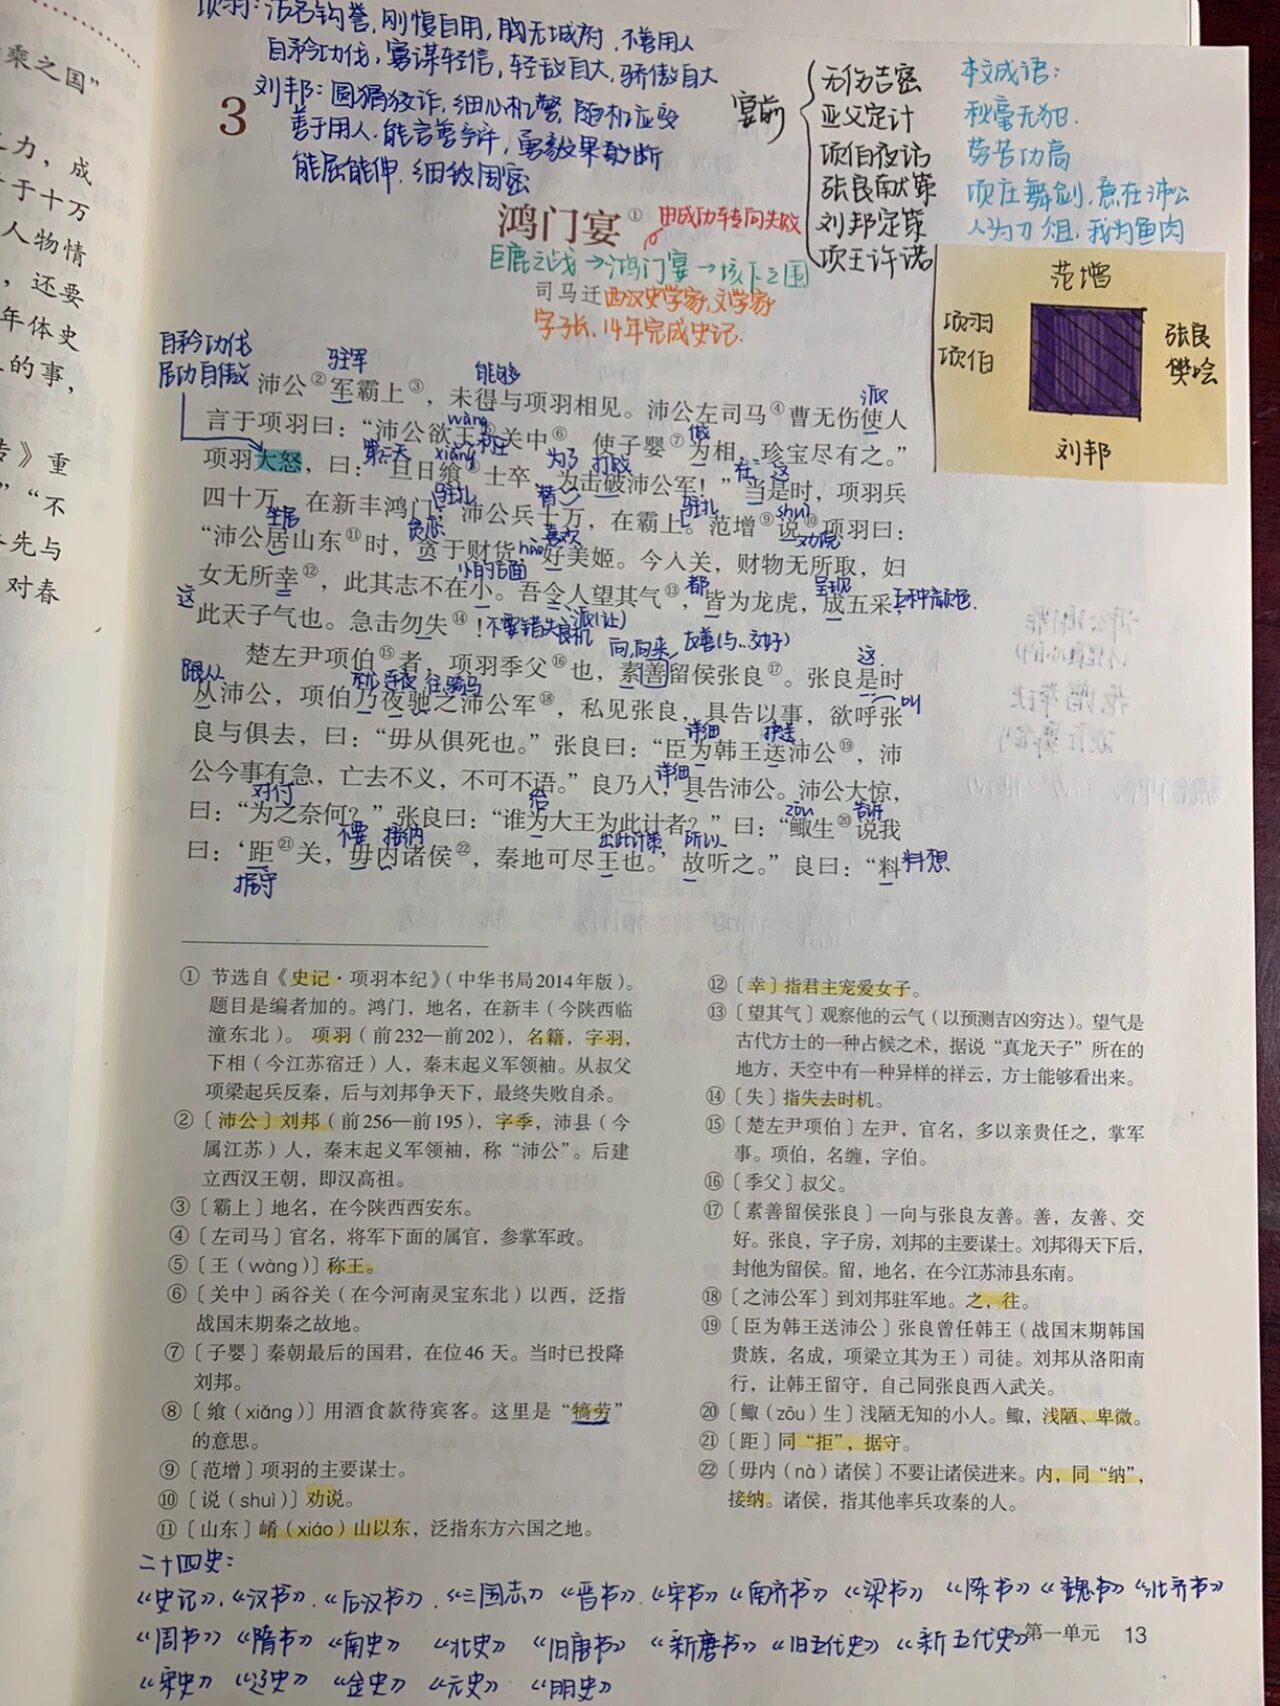 乘之国”
力，成
于十万
人物情
，还要
年体史
的事，
》重
”“不
先与
对春
项羽：沽名钓誉，刚愎自用，胸无城府，不善用人
自矜功伐，寡谋轻信，轻敌自大，骄傲自大
刘邦：圆猾狡诈，细心机警，随机应变
善于用人，能言善辩，勇毅果敢断
能屈能伸，细致周密
宴前
无伤告密
亚父定计
项伯夜访
张良献策
刘邦定策
项王许诺
本文成语：
秋毫无犯.
劳苦功高
项庄舞剑，意在沛公
人为刀俎，我为鱼肉
范增
项羽
项伯
张良
樊哙
刘邦
3
鸿门宴①
由成功车专向失败
巨鹿之战→鸿门宴→垓下之围
司马迁
西汉史学家，文学家
字子长，14年完成史记.
自矜功伐
居功自傲
驻军
能够
派
沛公②军霸上③，未得与项羽相见。沛公左司马④曹无伤使人
wàng
做
言于项羽曰：“沛公欲王⑤关中⑥，使子婴⑦为相，珍宝尽有之。”
第二天
xiǎng
为了
打败
在
这
项羽大怒，曰：“旦日飨⑧士卒，为击破沛公军！”当是时，项羽兵
驻扎
驻扎
shuì
四十万，在新丰鸿门；沛公兵十万，在霸上。范增⑨说⑩项羽曰：
贪恋
喜欢
劝说
“沛公居山东⑪时，贪于财货，好美姬。今入关，财物无所取，妇
hào
小的方面
都
呈现
女无所幸⑫，此其志不在小。吾令人望其气⑬，皆为龙虎，成五采，
五种颜色.
这
此天子气也。急击勿失⑭！”
不要错失良机
派(让)
向，向来
友善(与..交好)
这
楚左尹项伯⑮者，项羽季父⑯也，素善留侯张良⑰。张良是时
跟从
往
骑马
从沛公，项伯乃夜驰之沛公军⑱，私见张良，具告以事，欲呼张
叫
详细
护送
良与俱去，曰：“毋从俱死也。”张良曰：“臣为韩王送沛公⑲，沛
详细
公今事有急，亡去不义，不可不语。”良乃入，具告沛公。沛公大惊，
对付
给
zōu
告诉
曰：“为之奈何？”张良曰：“谁为大王为此计者？”曰：“鲰生⑳说我
不要
接纳
出此计策
所以
曰：‘距㉑关，毋内诸侯㉒，秦地可尽王也。’故听之。”良曰：“料
料想
据守
① 节选自《史记·项羽本纪》（中华书局2014年版）。
题目是编者加的。鸿门，地名，在新丰（今陕西临
潼东北）。项羽（前232—前202），名籍，字羽，
下相（今江苏宿迁）人，秦末起义军领袖。从叔父
项梁起兵反秦，后与刘邦争天下，最终失败自杀。
②〔沛公〕刘邦（前256—前195），字季，沛县（今
属江苏）人，秦末起义军领袖，称“沛公”。后建
立西汉王朝，即汉高祖。
③〔霸上〕地名，在今陕西西安东。
④〔左司马〕官名，将军下面的属官，参掌军政。
⑤〔王（wàng）〕称王。
⑥〔关中〕函谷关（在今河南灵宝东北）以西，泛指
战国末期秦之故地。
⑦〔子婴〕秦朝最后的国君，在位46天。当时已投降
刘邦。
⑧〔飨（xiǎng）〕用酒食款待宾客。这里是“犒劳”
的意思。
⑨〔范增〕项羽的主要谋士。
⑩〔说（shuì）〕劝说。
⑪〔山东〕崤（xiáo）山以东，泛指东方六国之地。
⑫〔幸〕指君主宠爱女子。
⑬〔望其气〕观察他的云气（以预测吉凶穷达）。望气是
古代方士的一种占候之术，据说“真龙天子”所在的
地方，天空中有一种异样的祥云，方士能够看出来。
⑭〔失〕指失去时机。
⑮〔楚左尹项伯〕左尹，官名，多以亲贵任之，掌军
事。项伯，名缠，字伯。
⑯〔季父〕叔父。
⑰〔素善留侯张良〕一向与张良友善。善，友善、交
好。张良，字子房，刘邦的主要谋士。刘邦得天下后，
封他为留侯。留，地名，在今江苏沛县东南。
⑱〔之沛公军〕到刘邦驻军地。之，往。
⑲〔臣为韩王送沛公〕张良曾任韩王（战国末期韩国
贵族，名成，项梁立其为王）司徒。刘邦从洛阳南
行，让韩王留守，自己同张良西入武关。
⑳〔鲰（zōu）生〕浅陋无知的小人。鲰，浅陋、卑微。
㉑〔距〕同“拒”，据守。
㉒〔毋内（nà）诸侯〕不要让诸侯进来。内，同“纳”，
接纳。诸侯，指其他率兵攻秦的人。
二十四史：
《史记》.《汉书》.《后汉书》.《三国志》《晋书》.《宋书》《南齐书》《梁书》《陈书》《魏书》《北齐书》
《周书》《隋书》《南史》《北史》《旧唐书》《新唐书》《旧五代史》《新五代史》
第一单元 13
《宋史》《辽史》《金史》《元史》《明史》